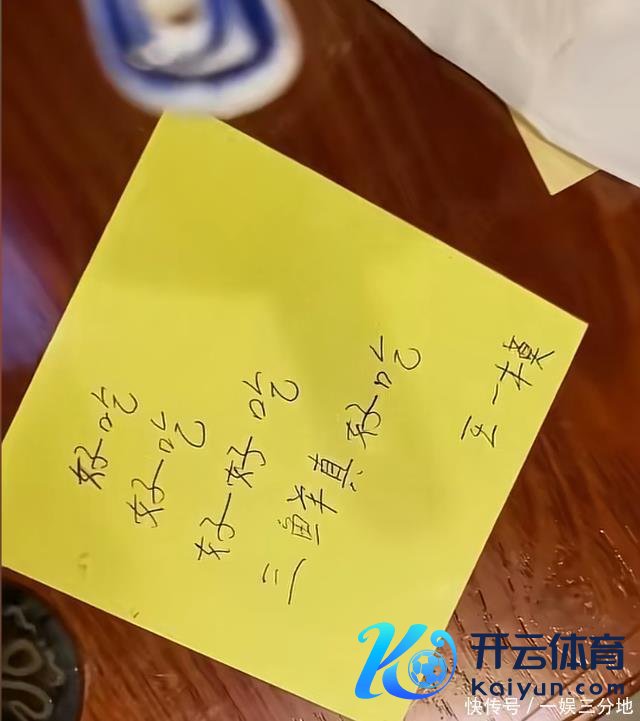 好吃
好吃
好好吃
三鲜真好吃
开云体育
Kaiyun.com
快传号／一娱三分地